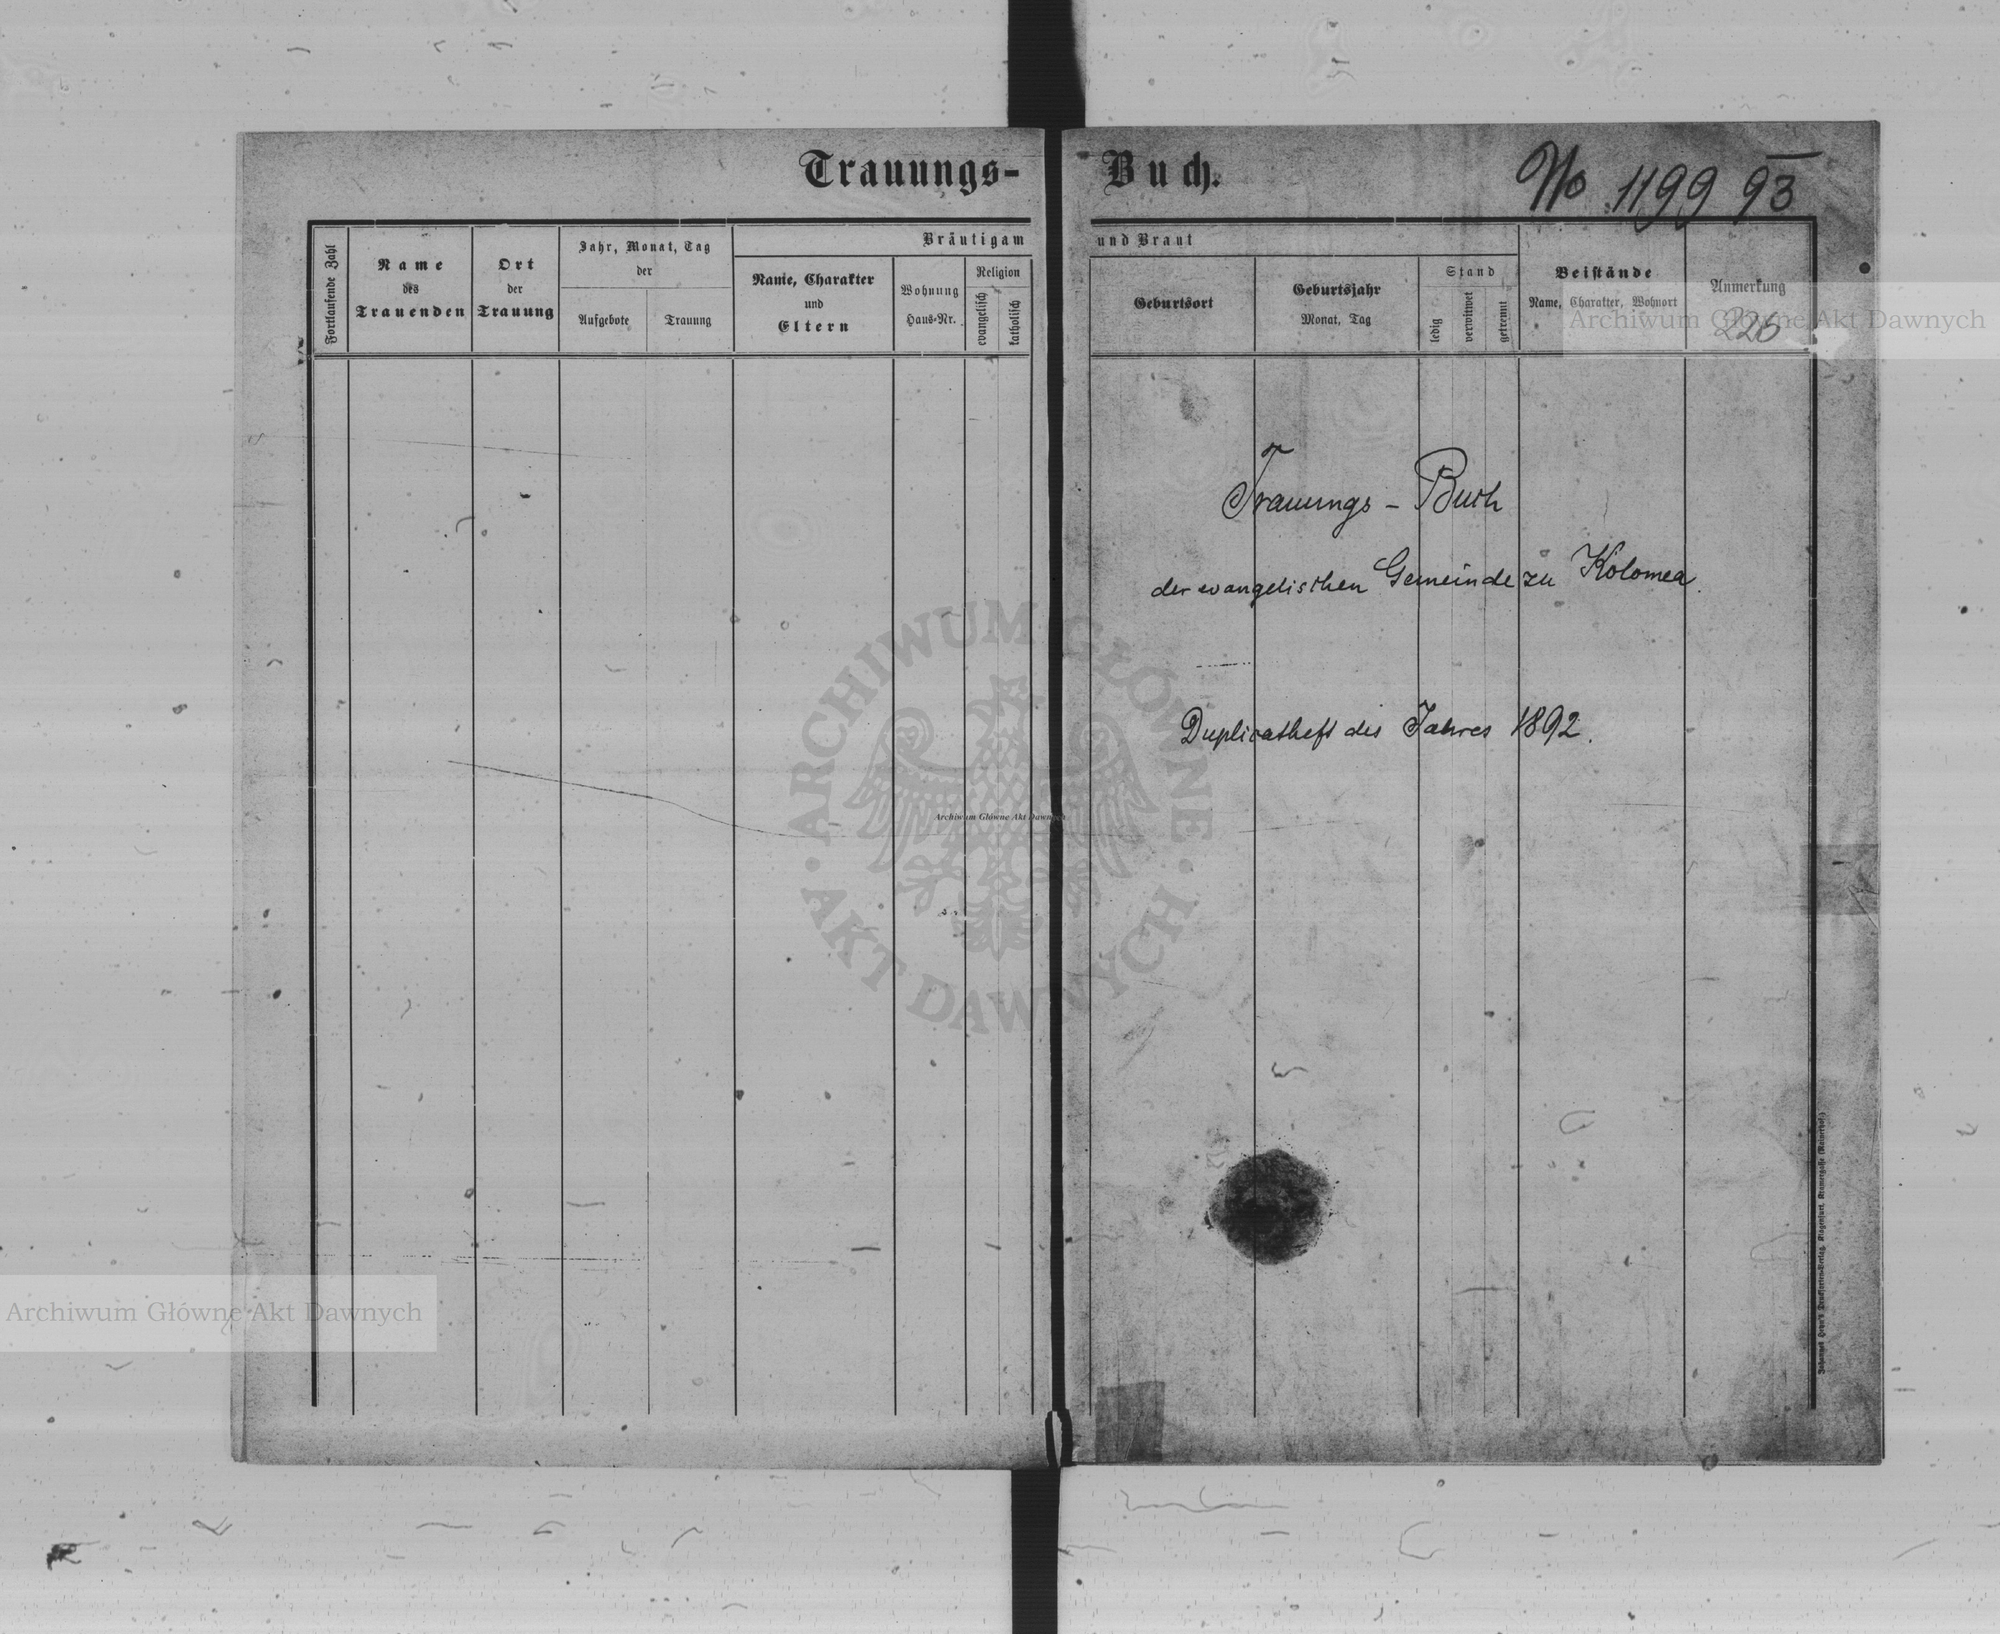 Trauungs-
Buch.
No 1199 93
Fortlaufende Zahl
Name
des
Trauenden
Ort
der
Trauung
Jahr, Monat, Tag
der
Aufgebote
Trauung
Bräutigam
Name, Charakter
und
Eltern
Wohnung
Haus-Nr.
Religion
evangelisch
katholisch
und Braut
Geburtsort
Geburtsjahr
Monat, Tag
Stand
ledig
verwitwet
getrennt
Beistände
Name, Charakter, Wohnort
Anmerkung
226
Archiwum Główne Akt Dawnych
Trauungs - Buch
der evangelischen Gemeinde zu Kolomea.
Duplicatheft des Jahres 1892.
ARCHIWUM GŁÓWNE
AKT DAWNYCH
Archiwum Główne Akt Dawnych
Archiwum Główne Akt Dawnych